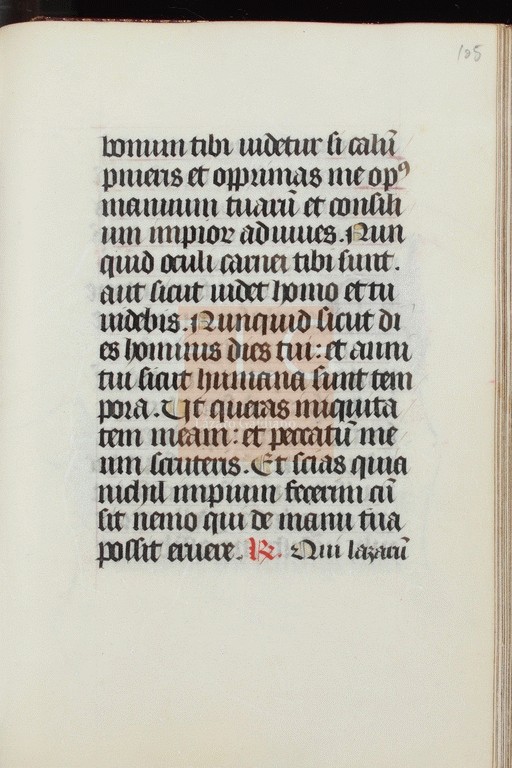 105
bonum tibi uidetur si calũ
pnieris et opprimas me opꝰ
manuum tuarũ et consili
um impioꝝ adiuues. Nun
quid oculi carnei tibi sunt.
aut sicut uidet homo et tu
uidebis. Nunquid sicut di
es hominis dies tui: et anni
tui sicut humana sunt tem
pora. Ut queras iniquita
tem meam: et peccatũ me
um scruteris. Et scias quia
nichil impium fecerim cũ
sit nemo qui de manu tua
possit eruere. R. Qui lazarũ